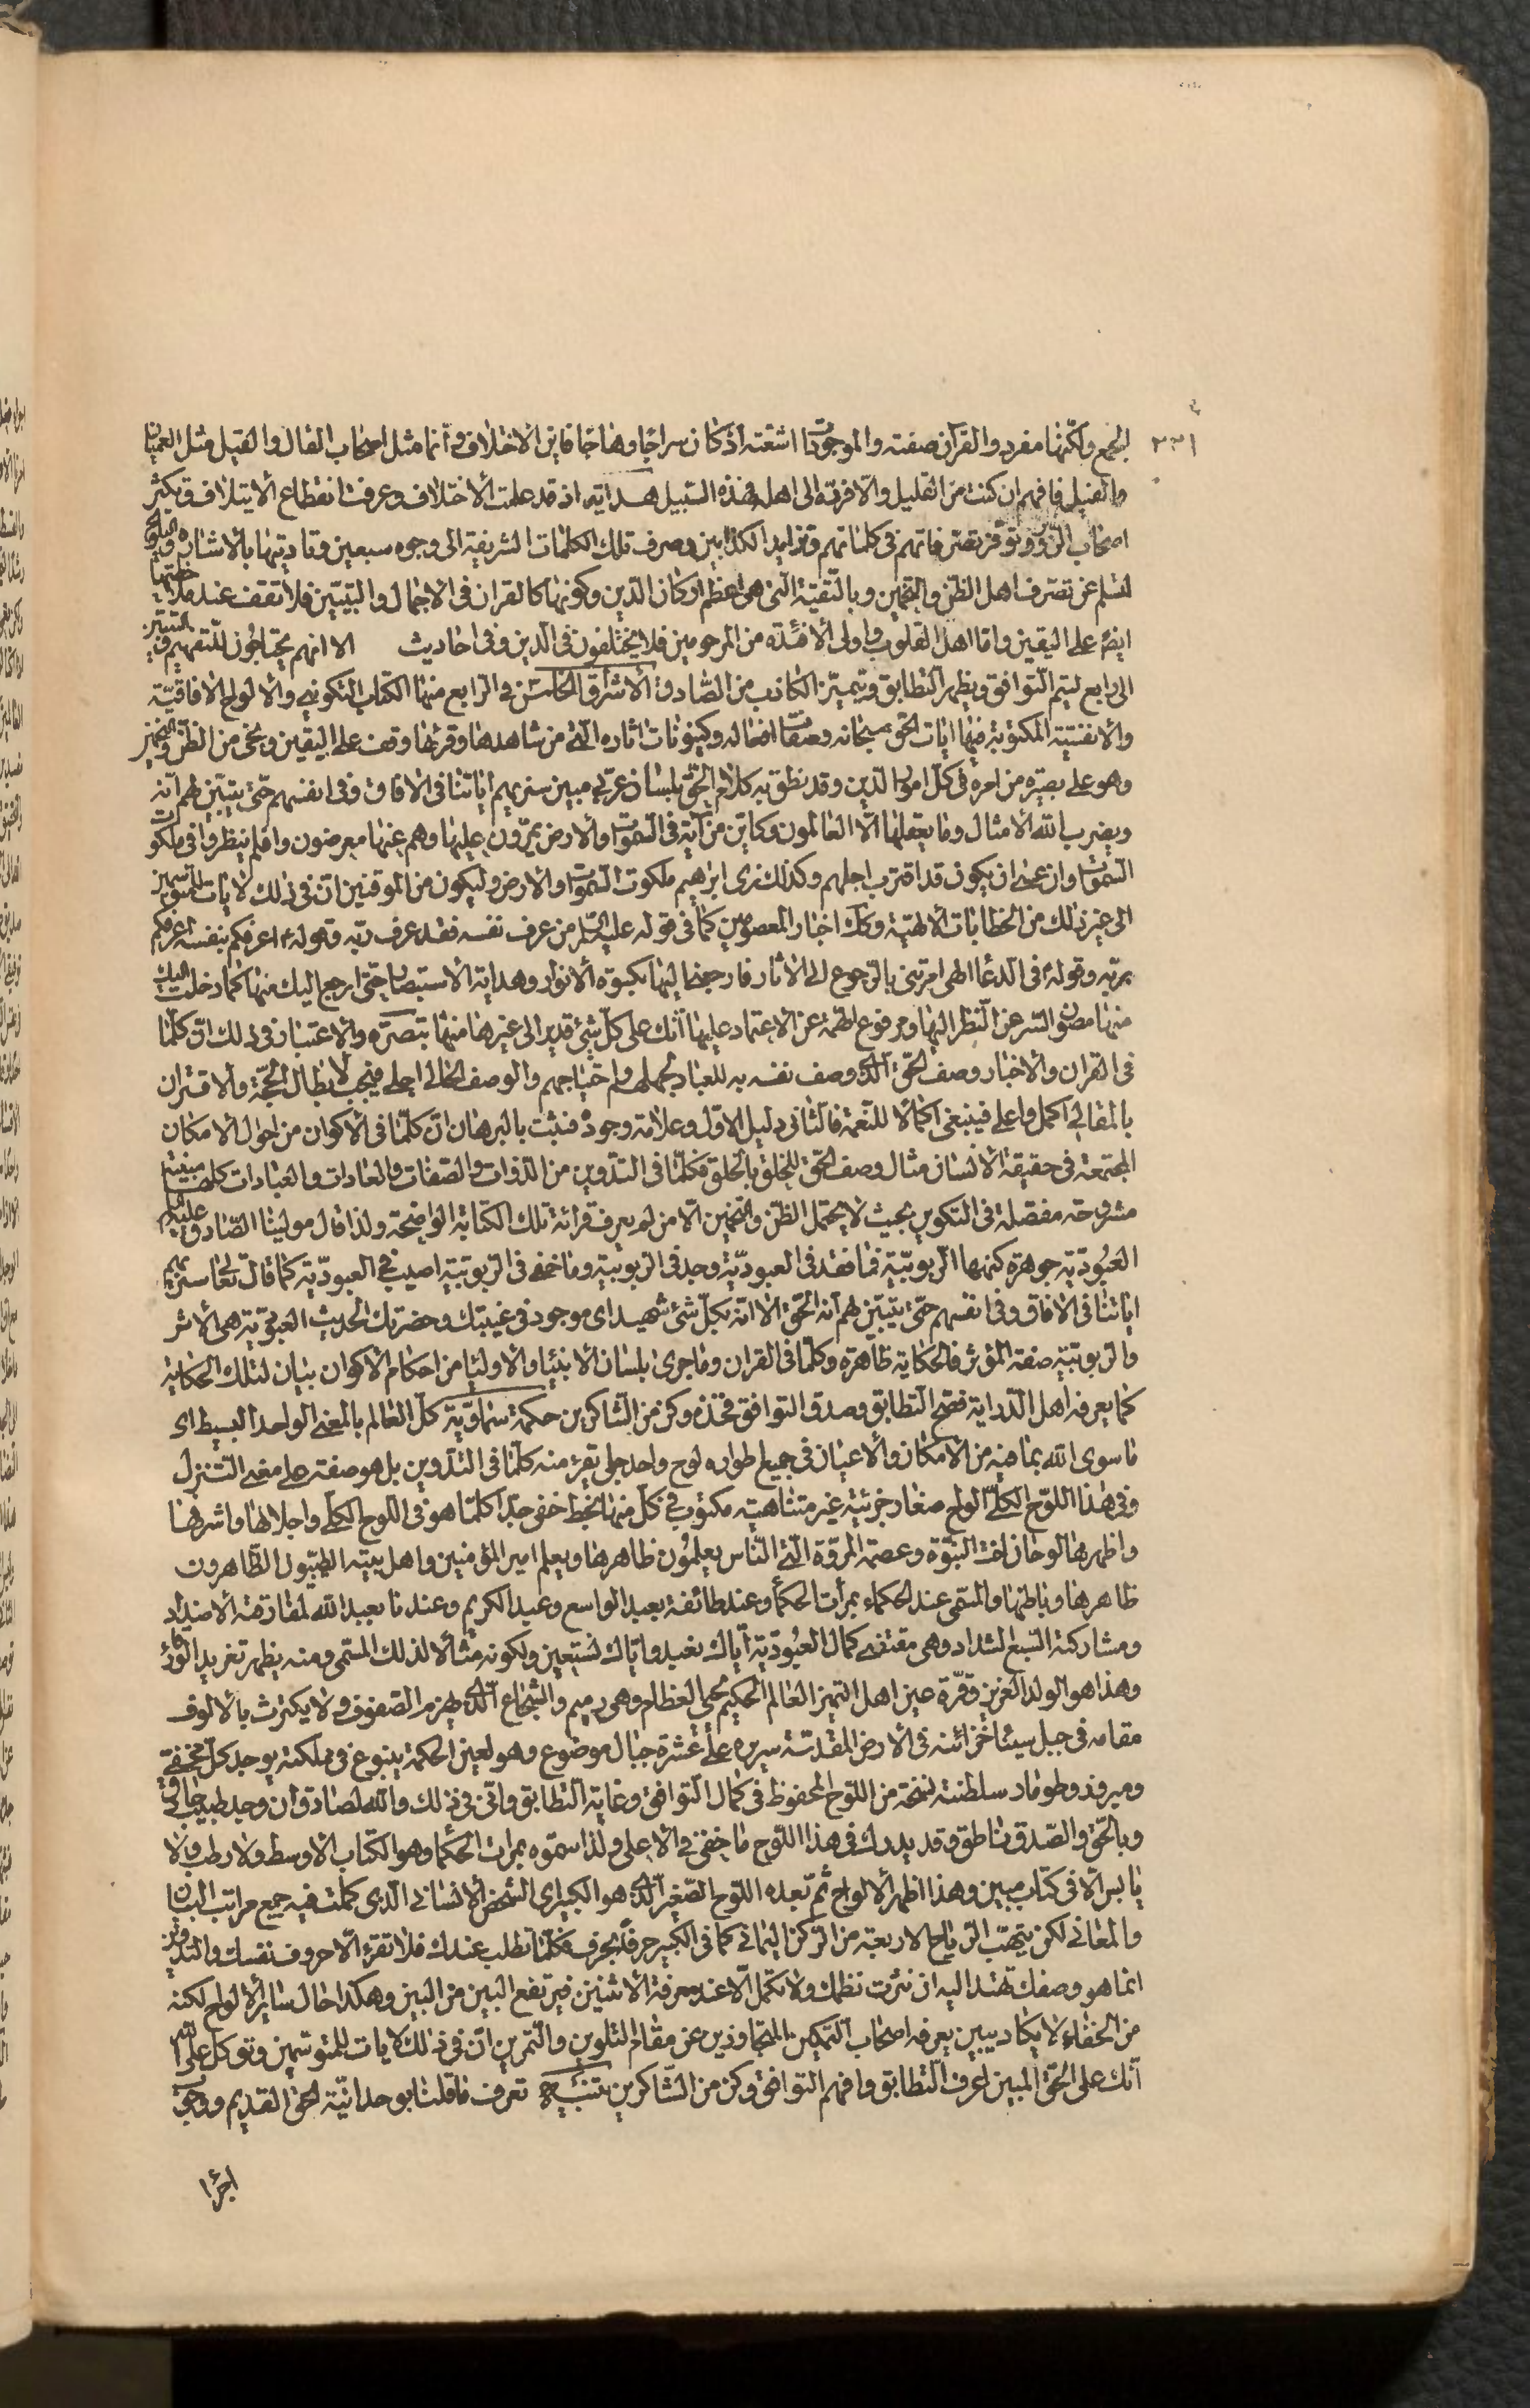 ٣٣١
الجمع ولكنها مفرد والقرآن صفته والموجودات اشعته اذ كان سراجا وهاجا فاين الاختلاف وانما مثل اصحاب القال والقيل مثل العميان
والفيل فافهم ان كنت من القليل والا فرده الى اهله فهذه السبيل هدايته اذ قد علمت الاختلاف وعرفت انقطاع الايتلاف وتكثر
اصحاب الزور وتوفر تصرفاتهم في كلماتهم وتزايد الكذابين وصرف تلك الكلمات الشريفة الى وجوه سبعين وتاديتها بالاشارة والتلويح
لتسلم عن تصرف اهل الظن والتخمين وبالتقية التي هي اعظم اركان الدين وكونها كالقران في الاجمال والتبيين فلا تقف عند
ايضا على اليقين واما اهل القلوب واولى الافئدة من المرحومين فلا يختلفون في الدين وفي احاديث الا انهم يحتاجون للتفهيم والتبيين
الى رابع ليتم التوافق ويظهر التطابق ويتميز الكاذب من الصادق الاشراق الخامس في الرابع منها الكتاب التكويني والالواح الافاقية
والانفسية المكتوبة فيها ايات الحق سبحانه وصفات افعاله وكينونات اثاره التي من شاهدها وقرئها وقف على اليقين ونجى من الظن والتخمين
وهو على بصيرة من امره في كل امور الدين وقد نطق به كلام الحق بلسان عربي مبين سنريهم اياتنا في الافاق وفي انفسهم حتى يتبين لهم انه
ويضرب الله الامثال وما يعقلها الا العالمون وكاين من آية في السموات والارض يمرون عليها وهم عنها معرضون واولم ينظروا في ملكوت
السموات وان عسى ان يكون قد اقترب اجلهم وكذلك نرى ابرهيم ملكوت السموات والارض وليكون من الموقنين ان في ذلك لايات للمتوسمين
الى غير ذلك من الخطابات الالهية وكك اخبار المعصومين كما في قوله عليه السلم من عرف نفسه فقد عرف ربه وقوله ع اعرفكم بنفسه اعرفكم
بربه وقوله في الدعا الهى امرتني بالرجوع الى الاثار فارجعنى اليها بكسوة الانوار وهداية الاستبصار حتى ارجع اليك منها كما دخلت اليك
منها مصون السر عن النظر اليها ومرفوع الهمة عن الاعتماد عليها انك على كل شئ قدير الى غيرها منها تبصرة والاعتبار في ذلك ان كلما
في القران والاخبار وصف الحق الذي وصف نفسه به للعباد لجهلهم واحتياجهم والوصف الحالي اجلى فيجب لابطال الحجة والاقتران
بالمقالي اكمل واعلى فينبغي اكمالا للنعمة فالثاني دليل الاول وعلامة وجوده فثبت بالبرهان ان كلما في الاكوان من احوال الامكان
المجتمعة في حقيقة الانسان مثال وصف الحق للخلق بالخلق فكلما في التدوين من الذوات والصفات والعادات والعبادات كلها مبينة
مشروحة مفصلة في التكوين بحيث لا يحتمل الظن والتخمين الا من لم يعرف قرائة تلك الكتابة الواضحة ولذا قال مولينا الصادق عليه السلام
العبودية جوهرة كنهها الربوبية فما فقد في العبودية وجد في الربوبية وما خفى في الربوبية اصيب في العبودية كما قال تعالى سنريهم
اياتنا في الافاق وفي انفسهم حتى يتبين لهم انه الحق الا انه بكل شئ شهيد اى موجود في غيبتك وحضرتك الحديث العبودية هي الاثر
والربوبية صفة المؤثر فالحكاية ظاهرة وكلما في القران وما جرى بلسان الانبيا والاوليا من احكام الاكوان بيان لتلك الحكاية
كما يعرفه اهل الدراية فصح التطابق وصدق التوافق فخذه وكن من الشاكرين حكمة سماوية كل العالم بالمعنى الواحد البسيط اى
ما سوى الله بما فيه من الامكان والاعيان في جميع اطواره لوح واحد جلى تقرء منه كلما في التدوين بل هو صفته على معنى التنزل
وفي هذا اللوح الكلى الواح صغار جزئية غير متناهية مكتوب في كل منها بخط خفى جدا كلما هو في اللوح الكلى واجلالها واشرفها
واظهرها لوحان اخت النبوة وعصمة المروة التي الناس يعلمون ظاهرها ويعلم امير المؤمنين واهل بيته الطيبون الطاهرون
ظاهرها وباطنها والمسمى عند الحكماء بمرات الحكماء وعند طائفة بعبد الواسع وعبد الكريم وعندنا بعبد الله لمفارقة الاضداد
ومشاركة السبع الشداد وهي مقتضى كمال العبودية اياك نعبد واياك نستعين ولكونه مثالا لذلك المسمى ومنه يظهر تغريد
وهذا هو الولد العزيز وقرة عين اهل التميز العالم الحكيم محيى العظام وهي رميم والشجاع الذي يهزم الصفوف ولا يكترث بالالوف
مقامه في جبل سينا خزائنه في الارض المقدسة سريره على عشرة جبال موضوع وهو لعين الحكمة ينبوع في مملكته يوجد كل مخفى
وميرفد وطومار سلطنته نسخة من اللوح المحفوظ في كمال التوافق وغاية التطابق وانى في ذلك والله لصادق ان وجد طبيب حاذق
وبالحق والصدق ناطق وقد يدرك في هذا اللوح ما خفى في الاعلى ولذا سموه بمرات الحكما وهو الكتاب الاوسط ولا رطب ولا
يابس الا في كتاب مبين وهذا اظهر الالواح ثم بعده اللوح الصغير الذي هو الكبير اى الشخص الانساني الذي كملت فيه جميع مراتب البيان
والمعاني لكن بتهب الرياح الاربعة من الركن اليماني كما في الكبير حرفا بحرف فكلما تطلب عندك فلا تقرء الا حروف نفسك والتدوين
انما هو وصفك تهتد اليه ان نثرت نظمك ولا تكمل الا عند معرفة الاثنين فيرتفع البين من البين وهكذا حال ساير الالواح لكنه
من الخفاء لا يكاد يبين يعرفه اصحاب التمكين المتجاوزين عن مقام التلوين والتمرين ان في ذلك لايات للمتوسمين وتوكل على الله
انك على الحق المبين اعرف التطابق وافهم التوافق وكن من الشاكرين تنبيه تعرف ما قلنا بوحدانية الحق القديم ووجوب
اجراء